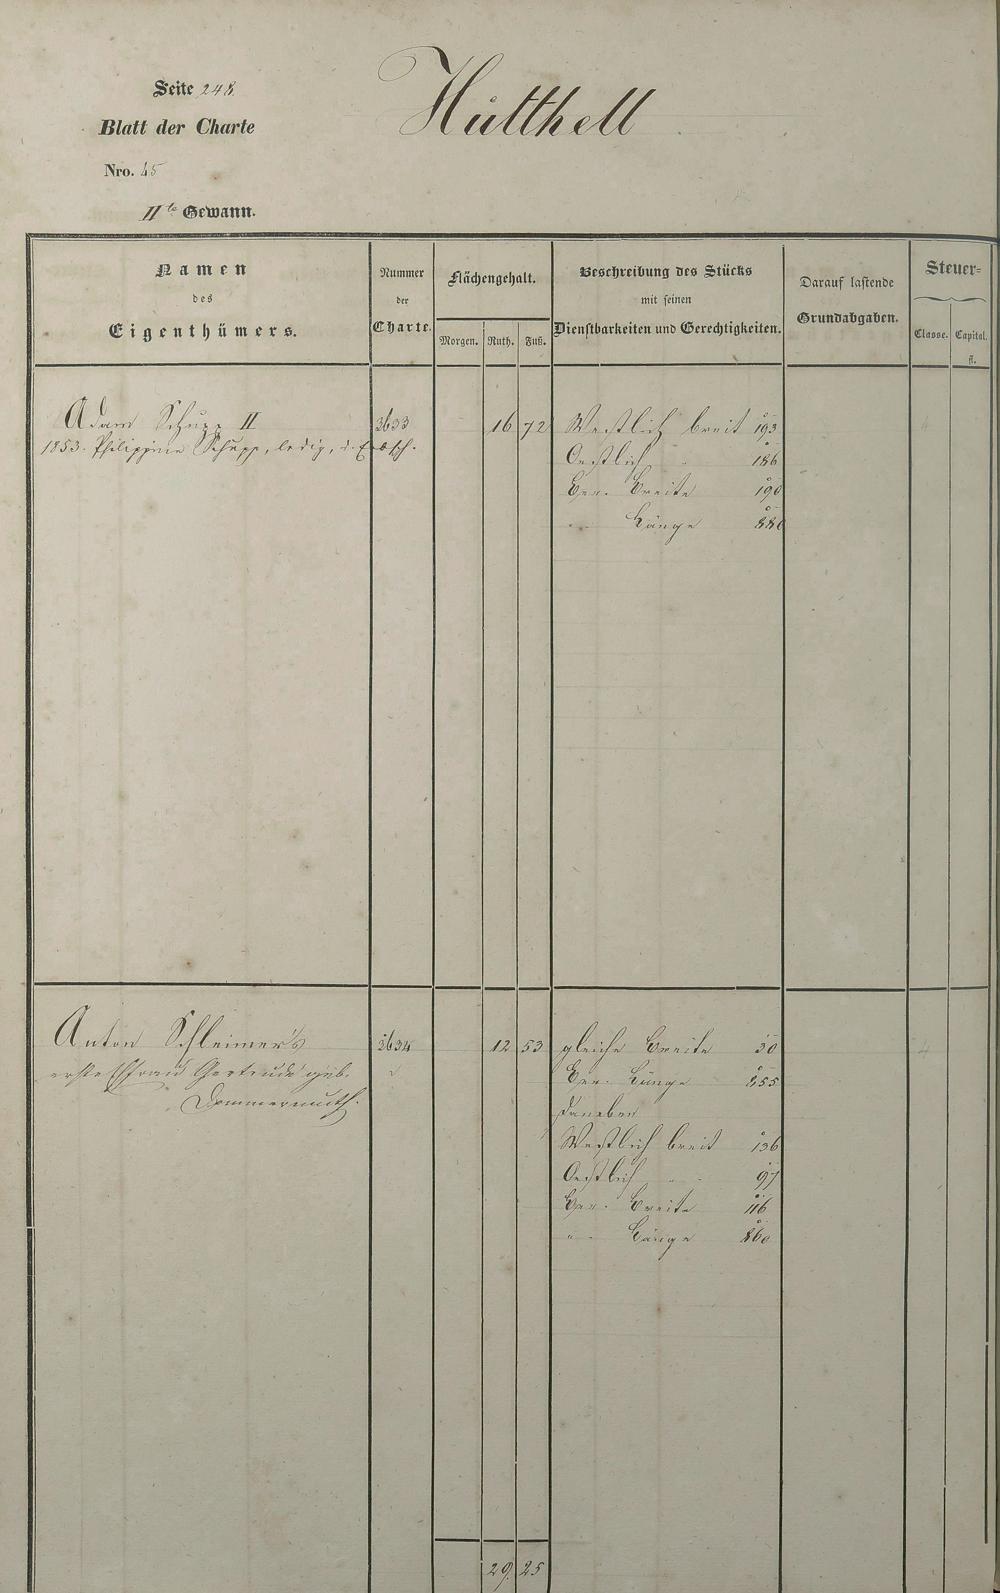 Seite 248.
Hütthell
Blatt der Charte
Nro. 45
IIte Gewann.
Namen
des
Eigenthümers.
Nummer
der
Charte.
Flächengehalt.
Morgen. Ruth. Fuß.
Beschreibung des Stücks
mit seinen
Dienstbarkeiten und Gerechtigkeiten.
Darauf lastende
Grundabgaben.
Steuer-
Classe. Capital.
fl.
Adam Schupp II 3633 16 72 Westlich breit 193
1853. Philippine Schupp, ledig, d. Erbsch.
Oestlich " 186
Ger. Breite 190
" Länge 880
Anton Schleimer's 3634 12 53 gleiche Breite 30
erste Ehfrau Gertrude geb. Ger. Länge 855
Dommermuth. Daneben
Westlich breit 136
Oestlich " 97
Ger. Breite 116
" Länge 860
29. 25